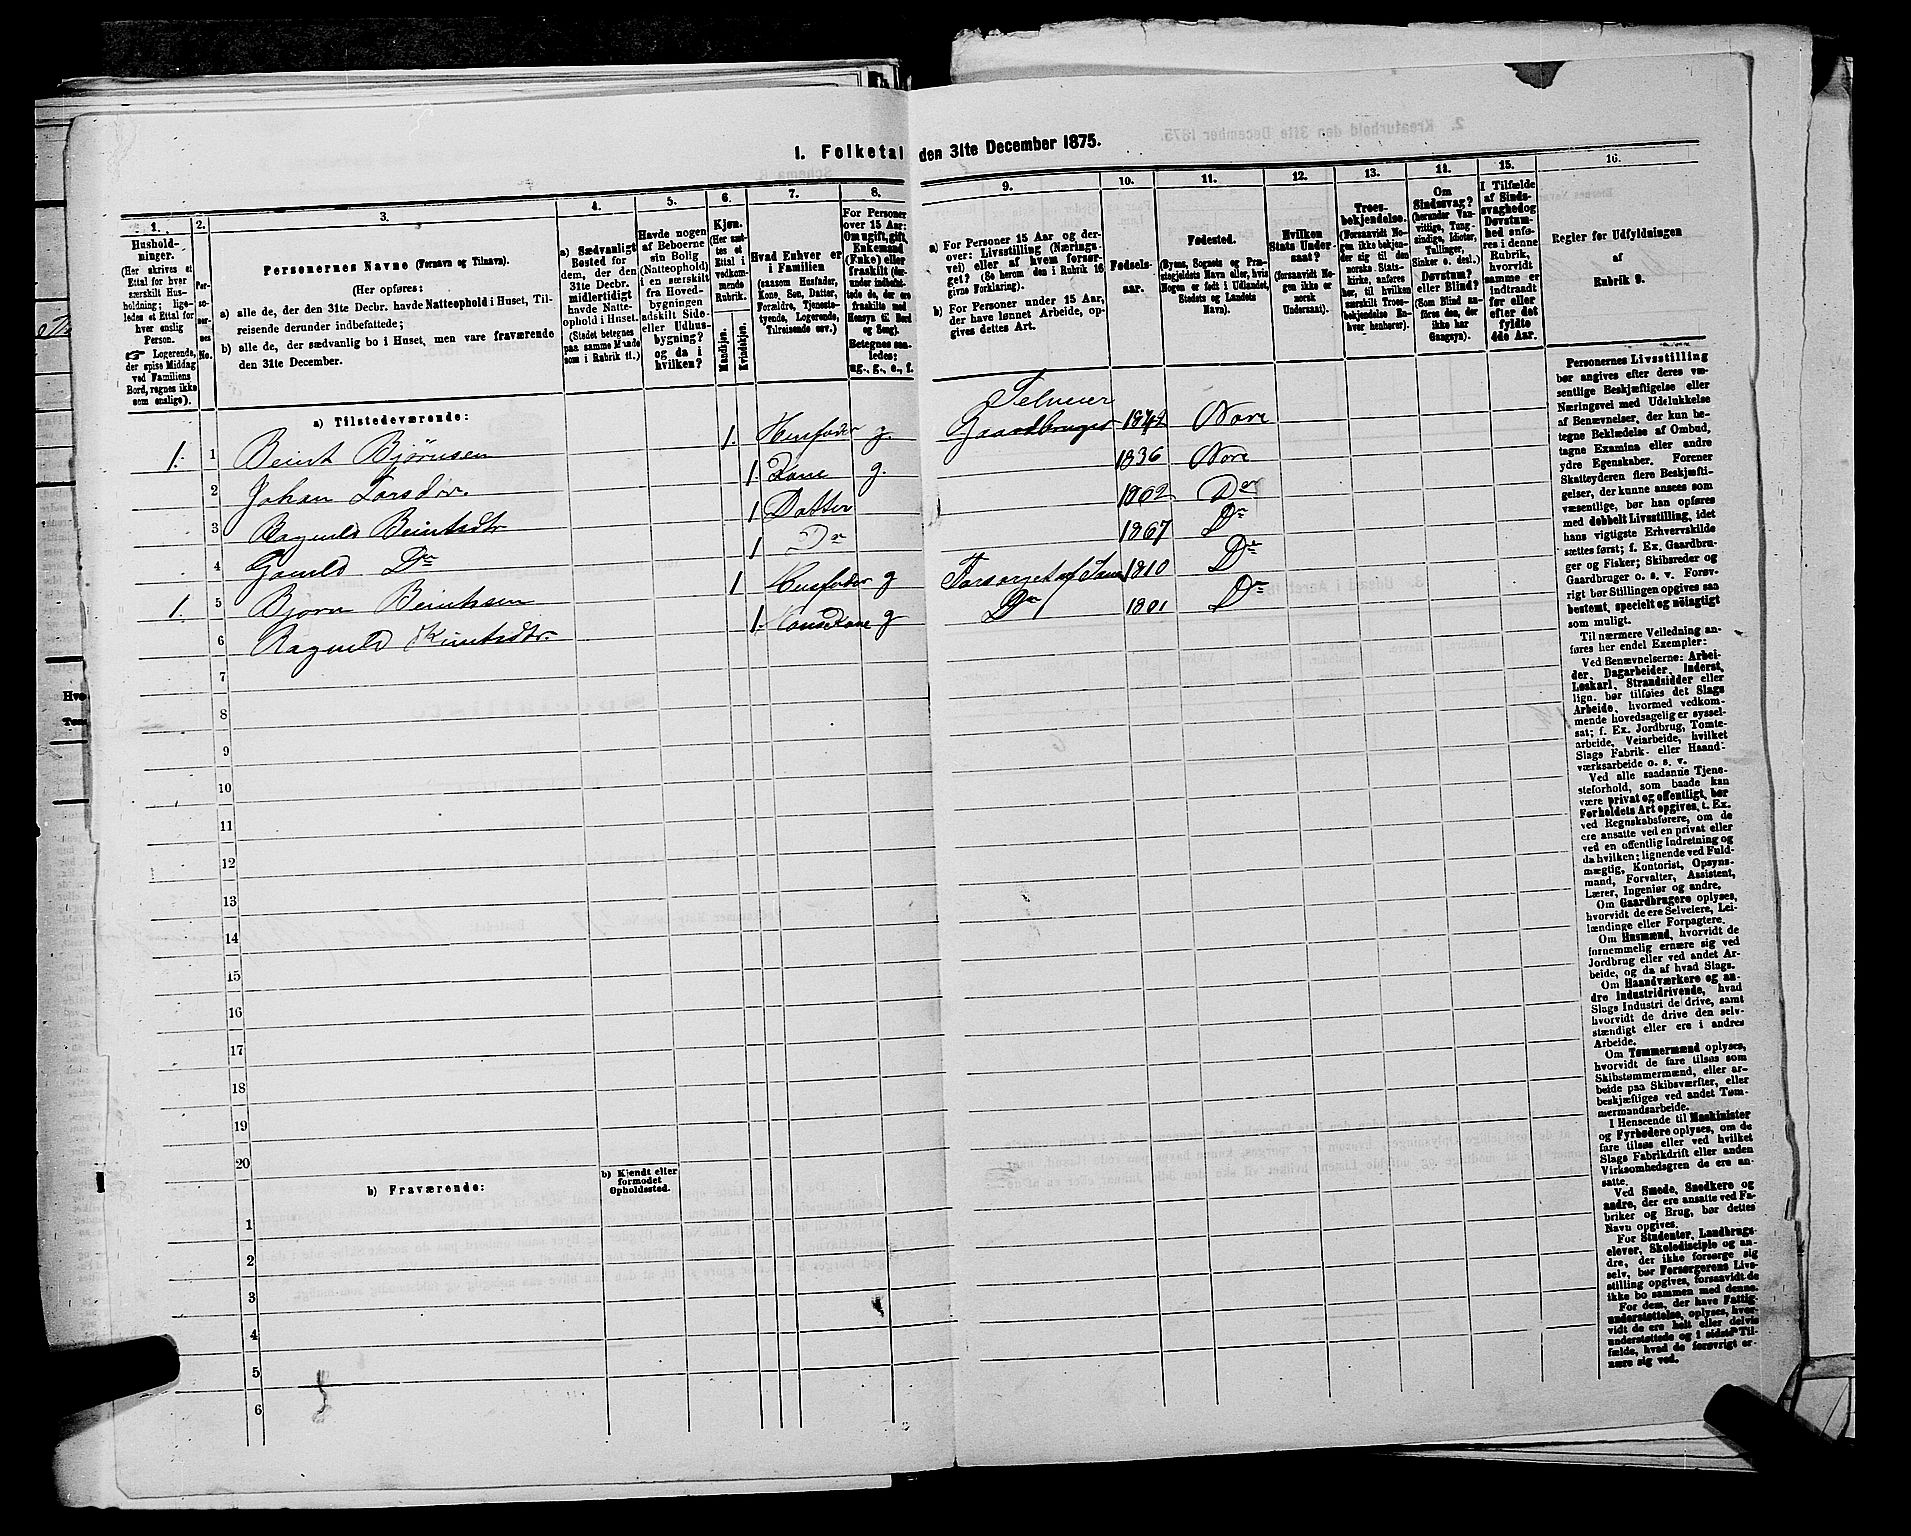 1. Folketal den 31te December 1875.
1.
2.
3.
4.
5.
6.
7.
8.
9.
10.
11.
12.
13.
14.
15.
16.
Husholdninger.
(Her skrives et
Ettal for hver
særskilt Husholdning;
ligeledes et Ettal for
hver enslig
Person.
☞ Logerende,
der spise Middag
ved Familiens
Bord, regnes ikke
som enslige).
Personernes No.
Personernes Navne (Fornavn og Tilnavn).
(Her opføres:
a) alle de, der den 31te Decbr. havde Natteophold i Huset, Tilreisende derunder indbefattede;
b) alle de, der sædvanlig bo i Huset, men vare fraværende
den 31te December.
a) Sædvanligt
Bosted for
dem, der den
31te Decbr.
midlertidigt
havde Natteophold i Huset.
(Stedet betegnes
paa samme Maade
som i Rubrik 11.)
Havde nogen
af Beboerne
sin Bolig
(Natteophold)
i en særskilt
fra Hovedbygningen
adskilt Side-
eller Udhusbygning?
og da i
hvilken?
Kjøn.
(Her sættes et
Ettal i
vedkommende
Rubrik.
Mandkjøn.
Kvindekjøn.
Hvad Enhver er
i Familien
(saasom Husfader,
Kone, Søn, Datter,
Forældre, Tjenestetyende, Logerende,
Tilreisende osv.)
For Personer
over 15 Aar:
Om ugift, gift,
Enkemand
(Enke) eller
fraskilt
Betegnes saaledes:
ug., g., e., f.
a) For Personer 15 Aar og derover: Livsstilling (Næringsvei) eller af hvem forsørget? (Se herom den i Rubrik 16
givne Forklaring).
b) For Personer under 15 Aar,
der have lønnet Arbeide, opgives dettes Art.
Fødselsaar.
Fødested.
(Byens, Sognets og Præstegjeldets Navn eller, hvis
Nogen er født i Udlandet,
Stedets og Landets
Navn).
Hvilken
Stats Undersaat?
(forsaavidt Nogen ikke er
norsk
Undersaat).
Troesbekjendelse.
(Forsaavidt Nogen ikke bekjender sig til den
norske Statskirke, anføres
her, til hvilken
særskilt Troesbekjendelse Enhver henhører).
Om
Sindssvag?
(herunder Vanvittige, Tungsindige, Idioter,
Tullinger,
Sinker o. desl.)
Døvstum?
eller Blind?
(Som Blind anføres den, der
ikke har
Gangsyn).
I Tilfælde
af Sindssvaghed og
Døvstumhed anføres i denne
Rubrik,
hvorvidt
samme er
indtraadt
før eller
efter det
fyldte
4de Aar.
Regler for Udfyldningen
af
Rubrik 9.
a) Tilstedeværende:
Selveier
1. 1 Beint Bjørnsen 1. Husfader g. Gaardbruger 1842 Nore
2 Johan Larsdtr. 1. Kone g. 1836 Nore
3 Ragnild Beintsdtr 1 Datter 1862 Do
4 Gonild Do 1 Do 1867 Do
1. 5 Bjørn Beintsen 1 Husfader g Forsørget af Sønn 1810 Do
6 Ragnild Kintsdtr. 1. Hans Kone g Do 1801 Do
7
8
9
10
11
12
13
14
15
16
17
18
19
20
b) Fraværende:
b) Kjendt eller
formodet
Opholdssted.
1
2
3
4
5
6
Personernes Livsstilling
bør angives efter deres væsentlige Beskjæftigelse eller
Næringsvei med Udelukkelse
af Benævnelser, der kun betegne Beklædelse af Ombud,
tagne Examina eller andre
ydre Egenskaber. Forener
Skatteyderen flere Beskjæftigelser, der kunne ansees som
væsentlige, bør han opføres
med dobbelt Livsstilling, idet
hans vigtigste Erhvervskilde
sættes først; f. Ex. Gaardbruger og Fisker; Skibsreder og
Gaardbruger o. s. v. Forøvrigt bør Stillingen opgives saa
bestemt, specielt og nøiagtigt
som muligt.
Til nærmere Veiledning anføres her endel Exempler:
Ved Benævnelserne: Arbeider, Dagarbeider, Inderst,
Løskarl, Strandsidder eller
lign. bør tilføies det Slags
Arbeide, hvormed vedkommende hovedsagelig er sysselsat; f. Ex. Jordbrug, Tomtearbeide, Veiarbeide, hvilket
Slags Fabrik- eller Haandværksarbeide o. s. v.
Ved alle saadanne Tjenesteforhold, som baade kan
være privat og offentligt, bør
Forholdets Art opgives, t. Ex.
ved Regnskabsførere, om de
ere ansatte ved en privat eller
ved en offentlig Indretning og
da hvilken; lignende ved Fuldmægtig, Kontorist, Opsynsmand, Forvalter, Assistent,
Lærer, Ingeniør og andre.
Om Gaardbrugere oplyses,
hvorvidt de ere Selveiere, Leilændinge eller Forpagtere.
Om Husmænd, hvorvidt de
fornemmelig ernære sig ved
Jordbrug eller ved andet Arbeide, og da af hvad Slags.
Om Haandværkere og andre Industridrivende, hvad
Slags Industri de drive, samt
hvorvidt de drive den selvstændigt eller ere i andres
Arbeide.
Om Tømmermænd oplyses,
hvorvidt de fare tilsøs som
Skibstømmermænd, eller arbeide paa Skibsværfter, eller
beskjæftiges ved andet Tømmermandsarbeide.
I Henseende til Maskinister
og Fyrbødere oplyses, om de
fare tilsøs eller ved hvilket
Slags Fabrikdrift eller anden
Virksomhedsgren de ere ansatte.
Ved Smede, Snedkere og
andre, der ere ansatte ved Fabriker og Brug, bør dettes
Navn opgives.
For Studenter, Landbrugselever, Skoledisciple og andre, der ikke forsørge sig
selv, bør Forsørgerens Livsstilling opgives, forsaavidt de
ikke bo sammen med denne.
For dem, der have Fattigunderstøttelse, oplyses, hvorvidt de ere helt eller delvis
understøttede og i sidste Tilfælde, hvad de forøvrigt ernære sig ved.